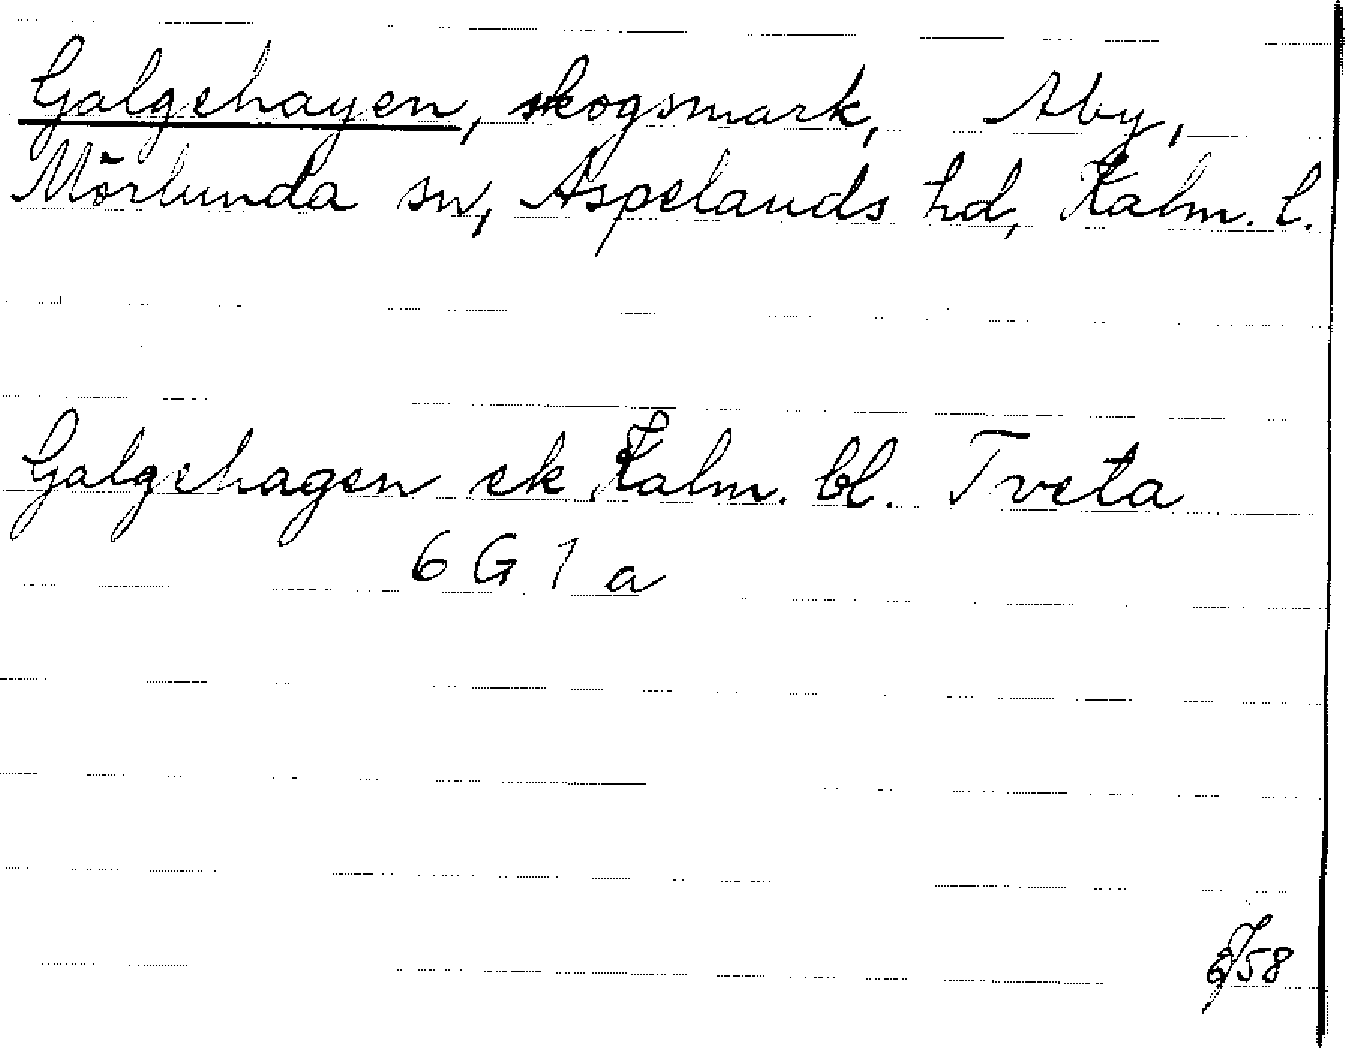 Galgehagen, skogsmark, Åby,
Mörlunda sn, Aspelands hd, Kalm. l.
Galgehagen ek Kalm. bl. Tveta
6 G 1 a
58